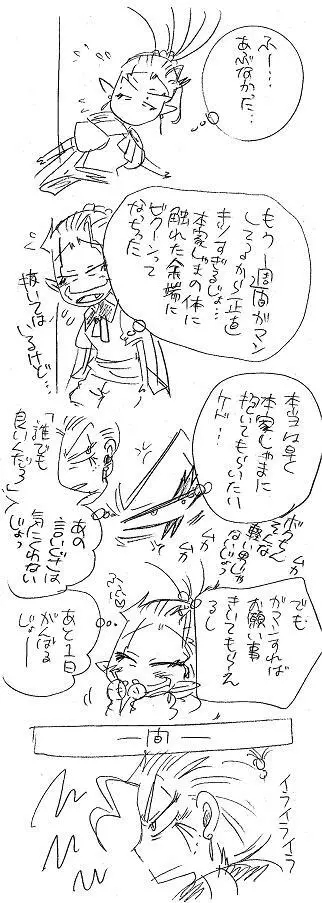 ふー…
あぶなかった…
もう一週間ガマン
してるから正直
キツすぎるじょ…
本家じゃまの体に
触れた途端に
ビクーンって
なっちった
抜いては
いるけど…
本当は早く
本家じゃまに
抱いてもらいたい
ケド…
ボクちん
そんな
軽い男じゃ
ないじょ
ムカ
ムカ
「誰でも
良いんだろ」
あの
言いぐさは
気にくわない
じょっ
でも
ガマンすれば
お願い事
きいてもらえ
るし
あと1日
がんばる
じょー
一間一
イライライラ